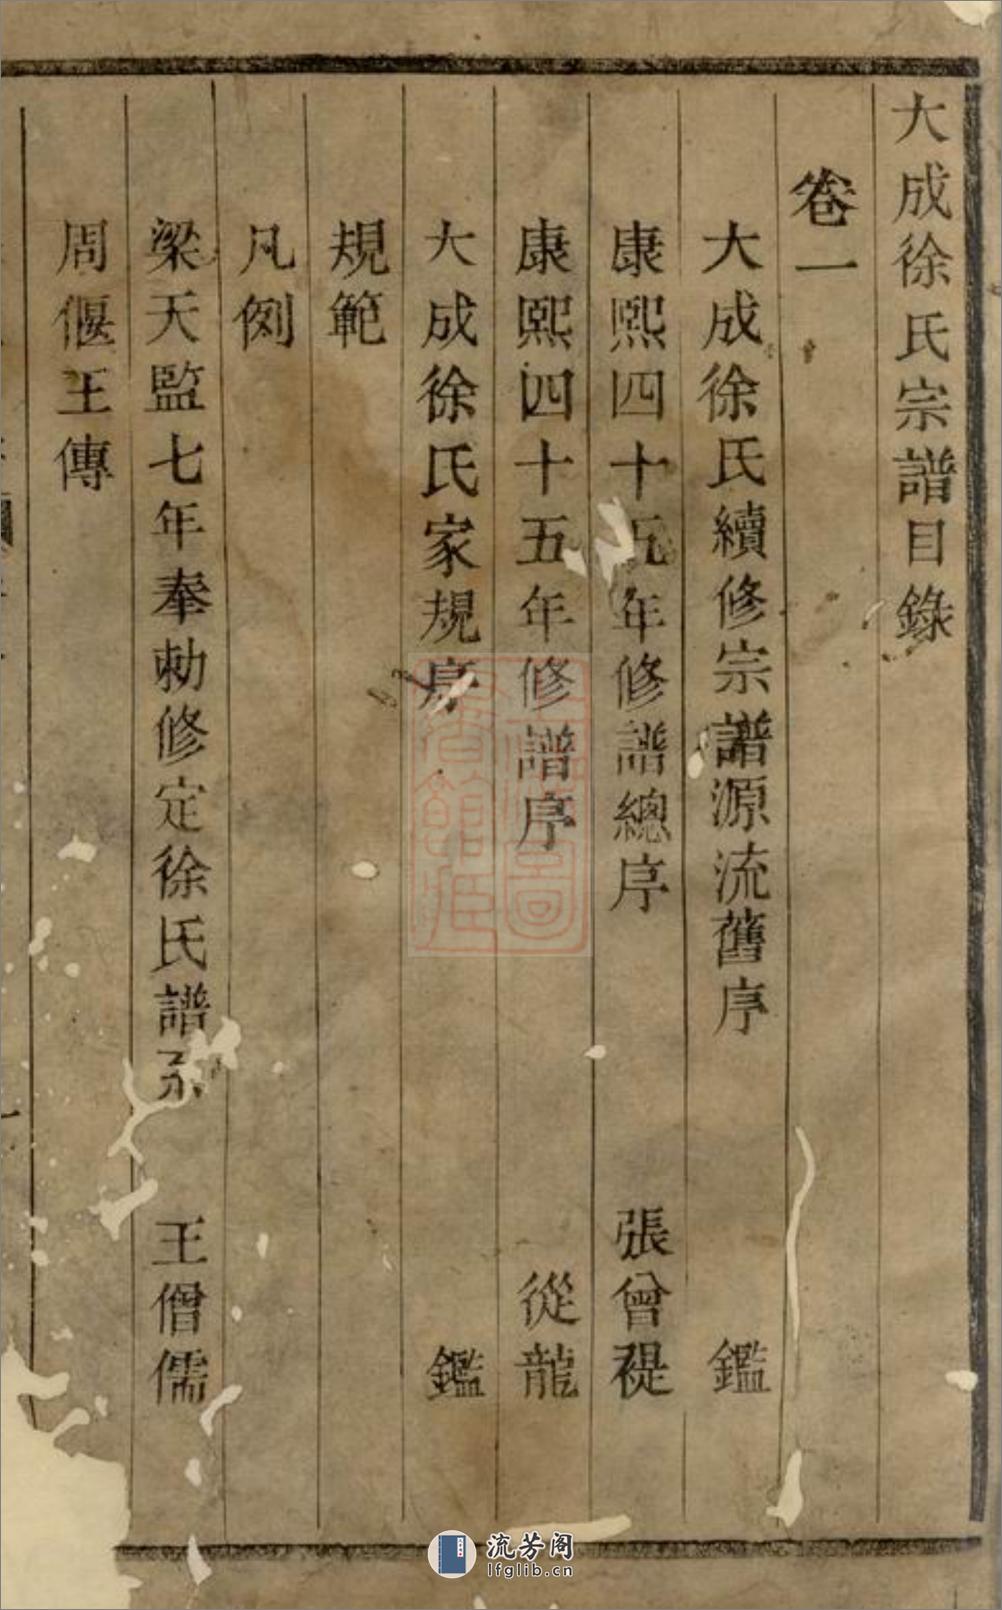 大成徐氏宗譜目錄
卷一
大成徐氏續修宗譜源流舊序 鑑
康熙四十五年修譜總序 張曾禔
康熙四十五年修譜序 從龍
大成徐氏家規序 鑑
規範
凡例
梁天監七年奉勅修定徐氏譜系 王僧儒
周偃王傳
流芳阁
lfglib.cn